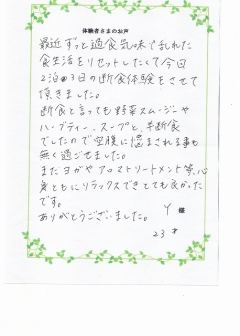 体験者さまのお声
最近ずっと過食気味で乱れた
食生活をリセットしたくて今回
2泊3日の断食体験をさせて
頂きました。
断食と言っても野菜スムージーや
ハーブティー、スープと、半断食
でしたので空腹に悩まされる事も
無く過ごせました。
またヨガやアロマトリートメント等、心
身ともにリラックスできとても良かった
です。
ありがとうございました。
Y 様
23才